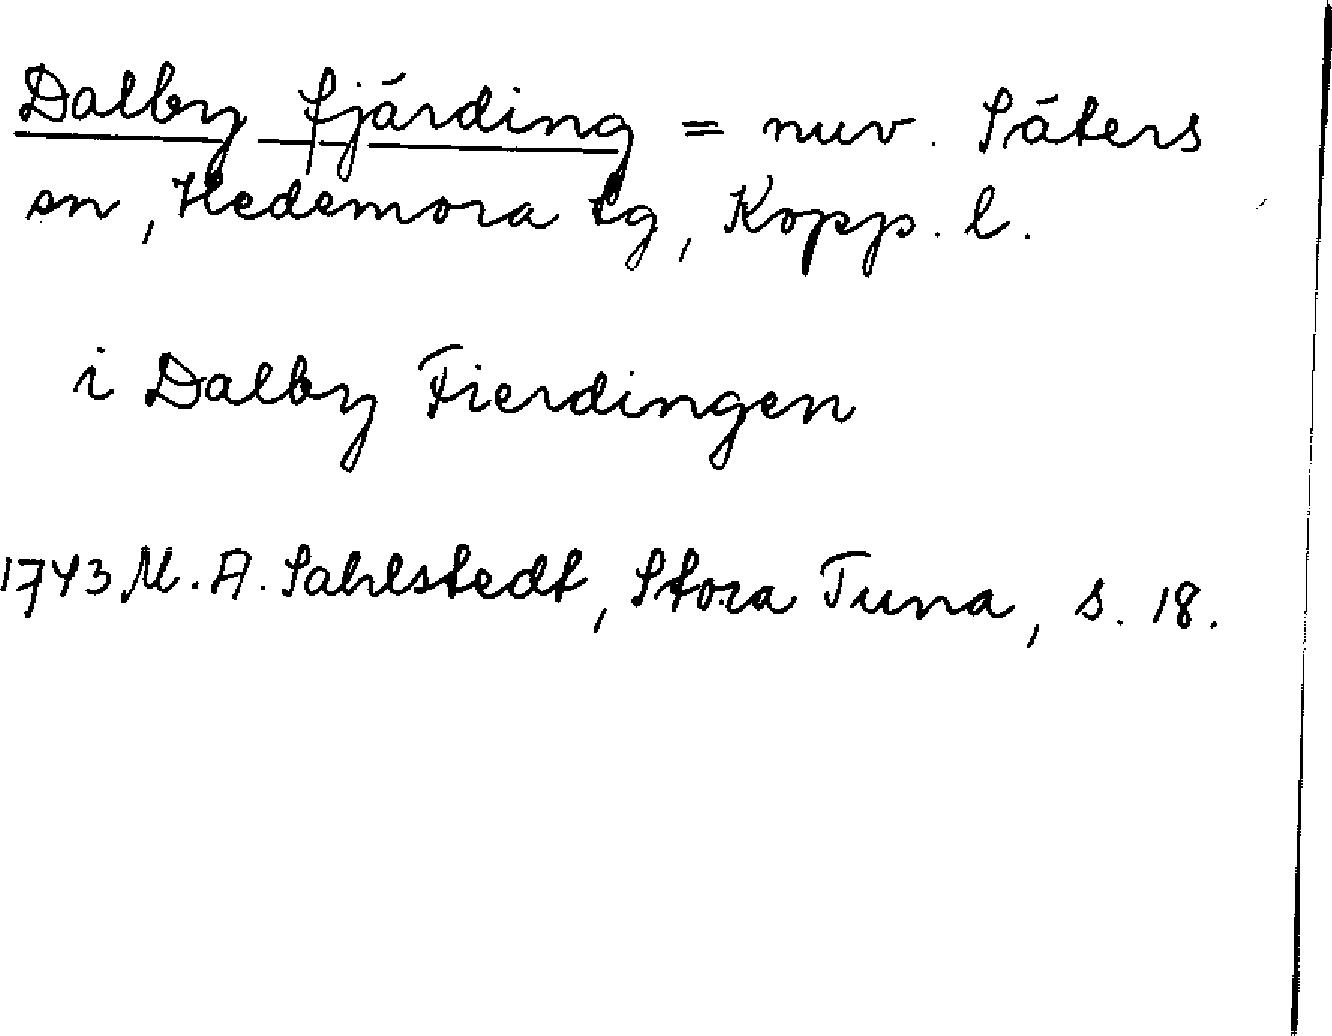 Dalby fjärding = nuv. Säters
sn, Hedemora tg, Kopp. l.
i Dalby Fierdingen
1743 M. A. Sahlstedt, Stora Tuna, s. 18.